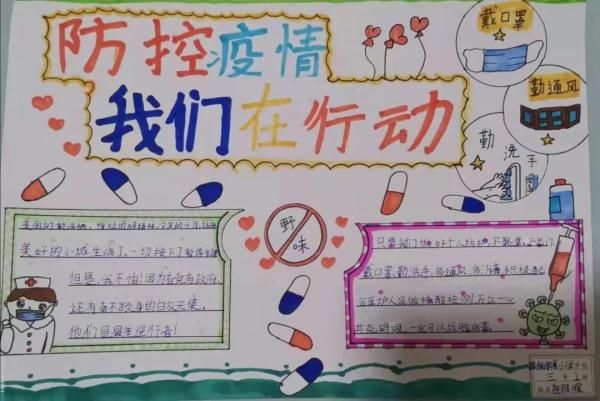 防控疫情
我们在行动
戴口罩
勤通风
勤洗手
野味
美好的小城生病了,一切按下了暂停键
但是,我不怕!因为有党有政府,
还有奋不顾身的白衣天使,
他们是最美逆行者!
只要我们做好个人防护,不聚集,不出门,
戴口罩,勤洗手,多通风,多消毒,积极配
合医护人员做核酸检测,万众一心
共克艰难,一定可以战胜病毒。
三年2班